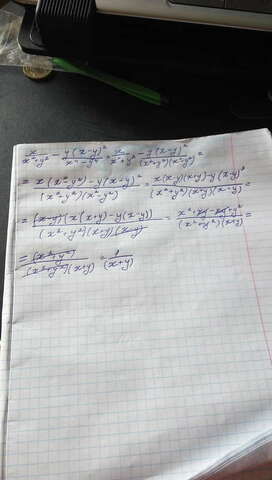 x/(x²+y²) - y(x-y)²/(x⁴-y⁴) = x/(x²+y²) - y(x-y)²/((x²+y²)(x²-y²)) =
= (x(x²-y²)-y(x-y)²)/((x²+y²)(x²-y²)) = (x(x-y)(x+y)-y(x-y)²)/((x²+y²)(x-y)(x+y)) =
= ((x-y)(x(x+y)-y(x-y)))/((x²+y²)(x+y)(x-y)) = (x²+xy-xy+y²)/((x²+y²)(x+y)) =
= (x²+y²)/((x²+y²)(x+y)) = 1/(x+y)